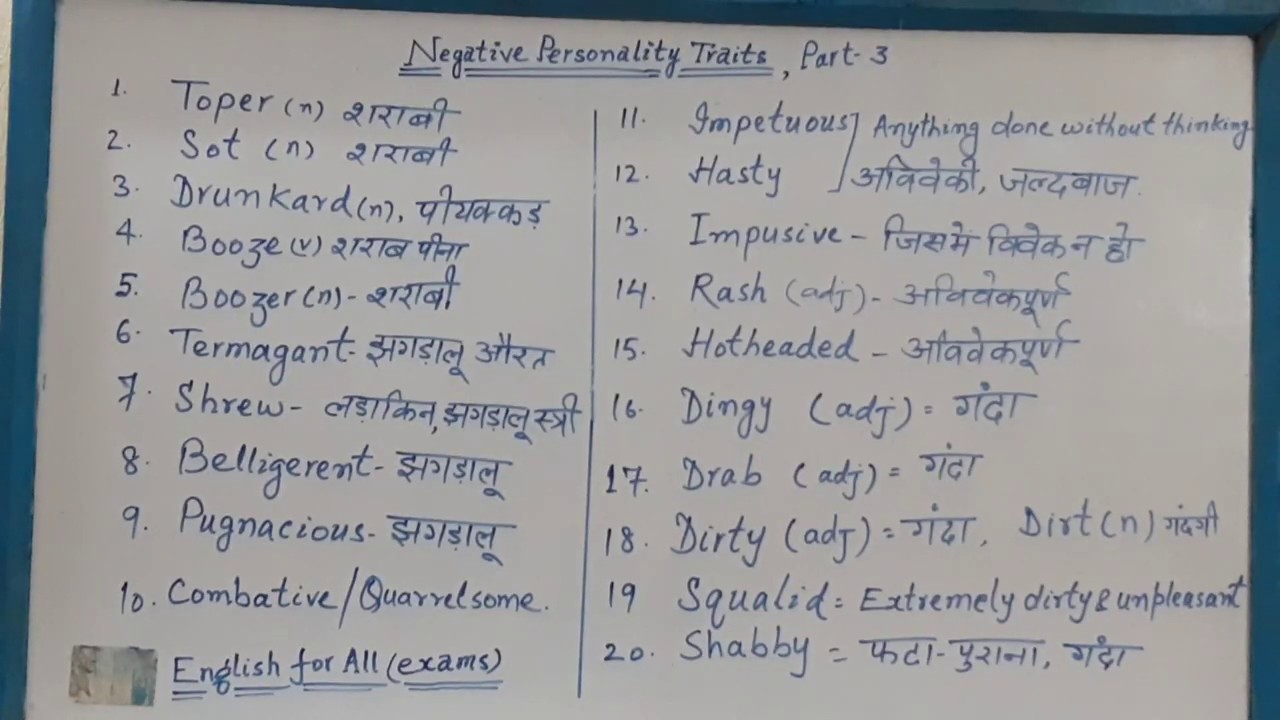 Negative Personality Traits, Part-3
1. Toper (n) शराबी
2. Sot (n) शराबी
3. Drunkard (n), पीयक्कड़
4. Booze (v) शराब पीना
5. Boozer (n) - शराबी
6. Termagant - झगड़ालू औरत
7. Shrew - लड़ाकिन, झगड़ालू स्त्री
8. Belligerent - झगड़ालू
9. Pugnacious - झगड़ालू
10. Combative/Quarrelsome.
English for All (exams)
11. Impetuous] Anything done without thinking
12. Hasty ] अविवेकी, जल्दबाज.
13. Impusive - जिसमें विवेक न हो
14. Rash (adj) - अविवेकपूर्ण
15. Hotheaded - अविवेकपूर्ण
16. Dingy (adj) = गंदा
17. Drab (adj) = गंदा
18. Dirty (adj) = गंदा, Dirt (n) गंदगी
19 Squalid = Extremely dirty & unpleasant
20. Shabby = फटा-पुराना, गंदा